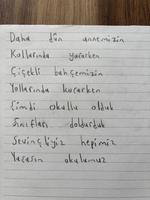 Daha dün annemizin
Kollarında yaşarken
Çiçekli bahçemizin
Yollarında koşarken
Şimdi okullu olduk
Sınıfları doldurduk
Sevinçliyiz hepimiz
Yaşasın okulumuz